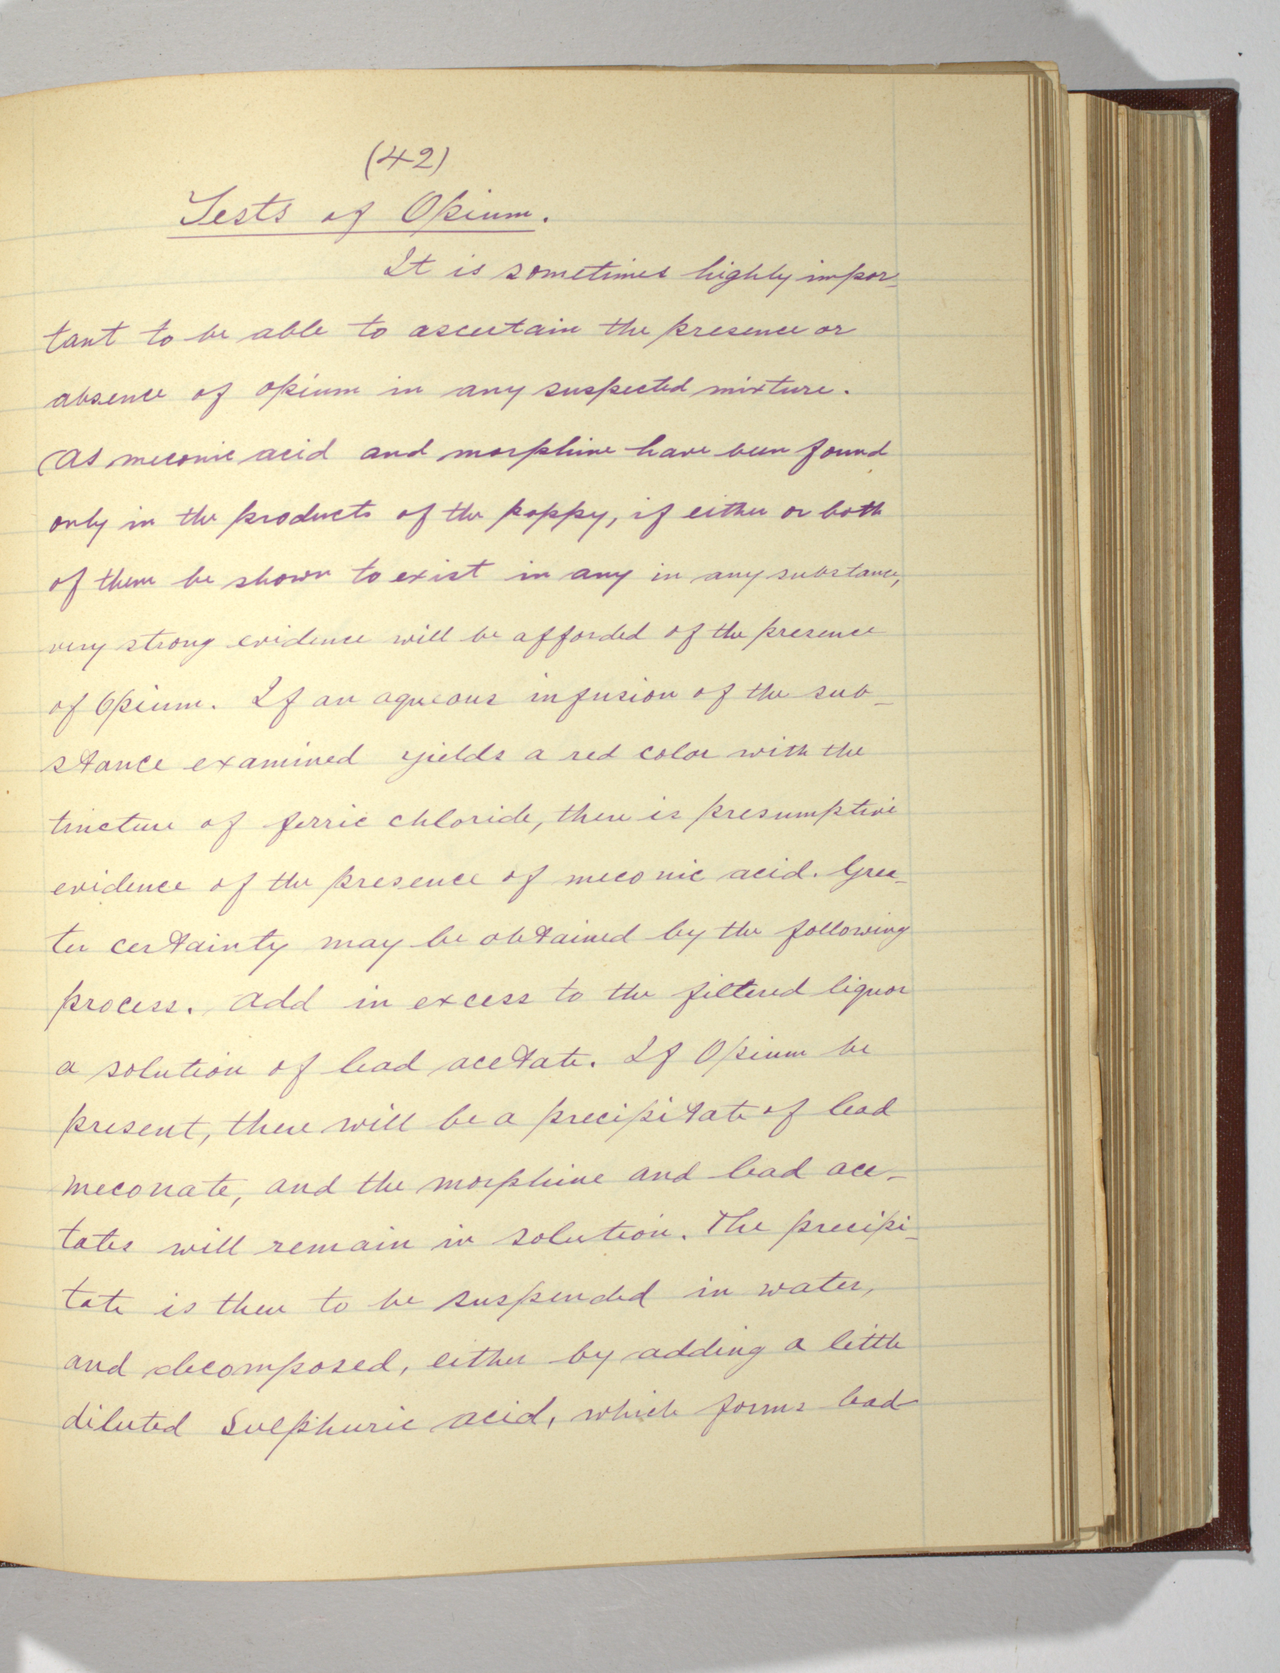 (42)
Tests of Opium.
It is sometimes highly impor-
tant to be able to ascertain the presence or
absence of opium in any suspected mixture.
As meconic acid and morphine have been found
only in the products of the poppy, if either or both
of them be shown to exist in any in any substance,
very strong evidence will be afforded of the presence
of Opium. If an aqueous infusion of the sub-
stance examined yields a red color with the
tincture of ferric chloride, there is presumptive
evidence of the presence of meconic acid. Grea-
ter certainty may be obtained by the following
process. Add in excess to the filtered liquor
a solution of lead acetate. If Opium be
present, there will be a precipitate of lead
meconate, and the morphine and lead ace-
tates will remain in solution. The precipi-
tate is then to be suspended in water,
and decomposed, either by adding a little
diluted Sulphuric acid, which forms lead